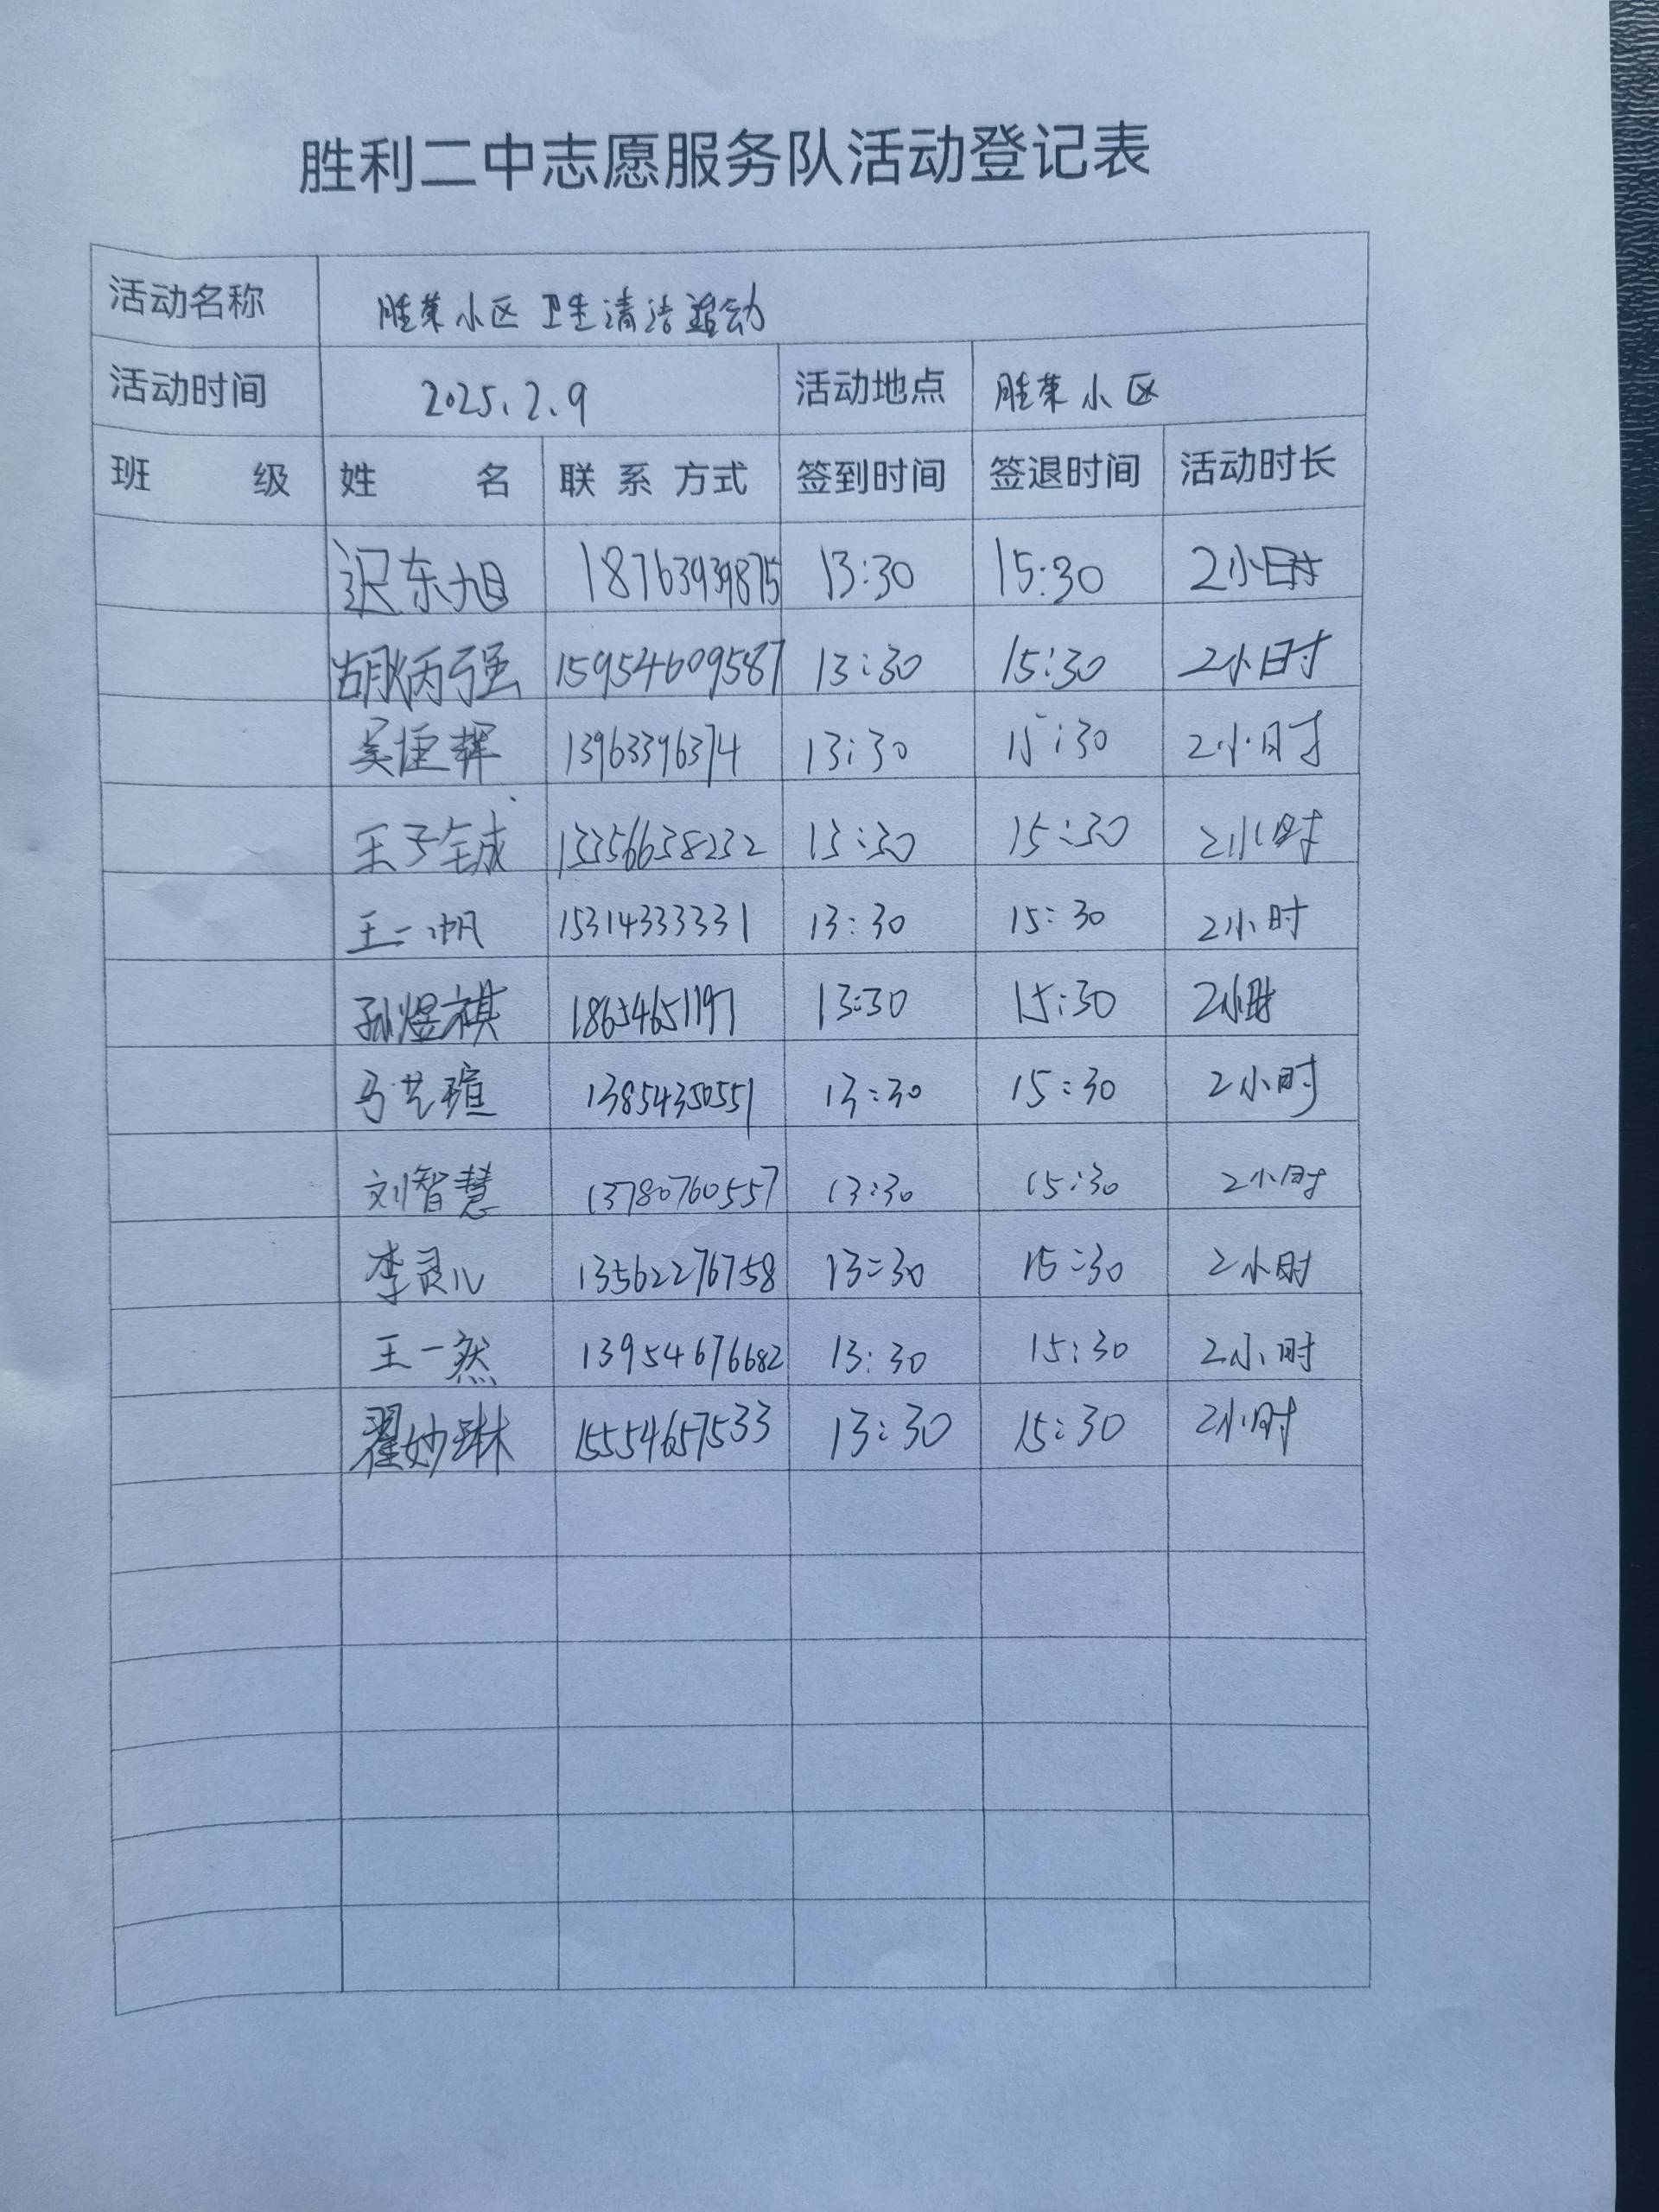 胜利二中志愿服务队活动登记表
活动名称 胜莱小区 卫生清洁活动
活动时间 2025.2.9 活动地点 胜莱小区
班 级 姓 名 联系方式 签到时间 签退时间 活动时长
迟东旭 18763939875 13:30 15:30 2小时
胡炳强 15954609587 13:30 15:30 2小时
吴捷辉 13963396374 13:30 15:30 2小时
王子铖 13356638232 13:30 15:30 2小时
王一帆 15314333331 13:30 15:30 2小时
孙煜祺 18654651197 13:30 15:30 2小时
马艺瑄 13854350551 13:30 15:30 2小时
刘智慧 13780760557 13:30 15:30 2小时
李灵儿 13562276758 13:30 15:30 2小时
王一然 13954676682 13:30 15:30 2小时
翟妙琳 15554657533 13:30 15:30 2小时